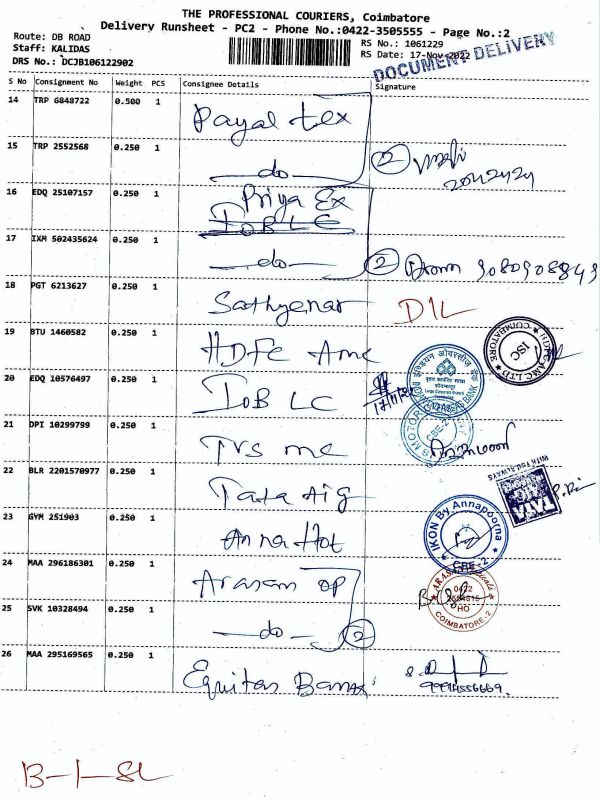 THE PROFESSIONAL COURIERS, Coimbatore
Delivery Runsheet - PC2 - Phone No.:0422-3505555 - Page No.:2
Route: DB ROAD
RS No.: 1061229
Staff: KALIDAS
RS Date: 17-Nov-2022
DRS No.: DCJB106122902
DOCUMENT DELIVERY
S No Consignment No Weight PCS Consignee Details Signature
14 TRP 6848722 0.500 1 Payal tex
15 TRP 2552568 0.250 1 —do— 2
16 EDQ 25107157 0.250 1 Priya Ex
IOB LC
17 IXM 502435624 0.250 1 —do— 2 9080908849
18 PGT 6213627 0.250 1 D/L
19 BTU 1460582 0.250 1 HDFC Amc
ISC
COIMBATORE
20 EDQ 10576497 0.250 1 IOB LC
21 DPI 10299799 0.250 1 TVS mc
CBE-2
22 BLR 2201570977 0.250 1 Tata Aig
WITH YOU ALWAYS
23 GYM 251903 0.250 1 Anna Hot
IKON By Annapoorna
CBE-2
24 MAA 296186301 0.250 1 Arasan op
25 SVK 10328494 0.250 1 —do— 2
HO
COIMBATORE-2
26 MAA 295169565 0.250 1 Equitas Bank
B-1-SL